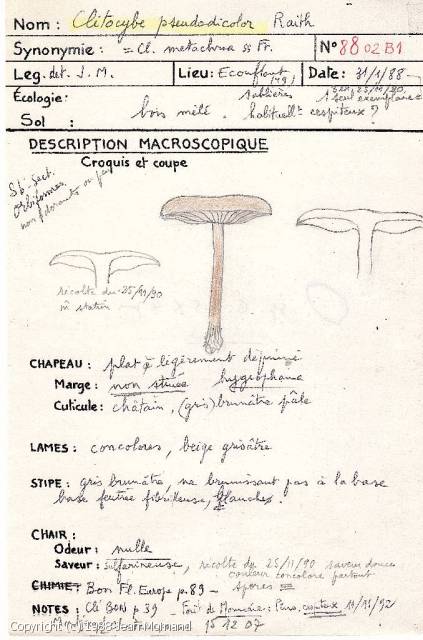 Nom : Clitocybe pseudodicolor Raith
Synonymie : = Cl. metachroa ss Fr. N° 88 02 B1
Leg. det. J. M. Lieu : Ecouflant (49) Date : 31/1/88
Écologie : Sablières 25/11/90
Sol : bois mêlé . habituellt cespiteux ?
DESCRIPTION MACROSCOPIQUE
Croquis et coupe
Sb. sect.
orbiformes
non odorants ou peu
récolte du 25/11/90
m station
CHAPEAU : plat à légèrement déprimé
Marge : non striée hygrophane
Cuticule : châtain, (gris) brunâtre pâle
LAMES : concolores, beige grisâtre
STIPE : gris brunâtre, ne brunissant pas à la base
base feutrée fibrilleuse, blanche.
CHAIR :
Odeur : nulle
Saveur : subfarineuse, récolte du 25/11/90 saveur douce
couleur concolore partout
CHIMIE : Bon Fl. Europe p. 89 - spores =
NOTES : Clé BON p 39 - Forêt de 11/11/92
Copyright (c) 1988 Jean Mornand
15 12 07